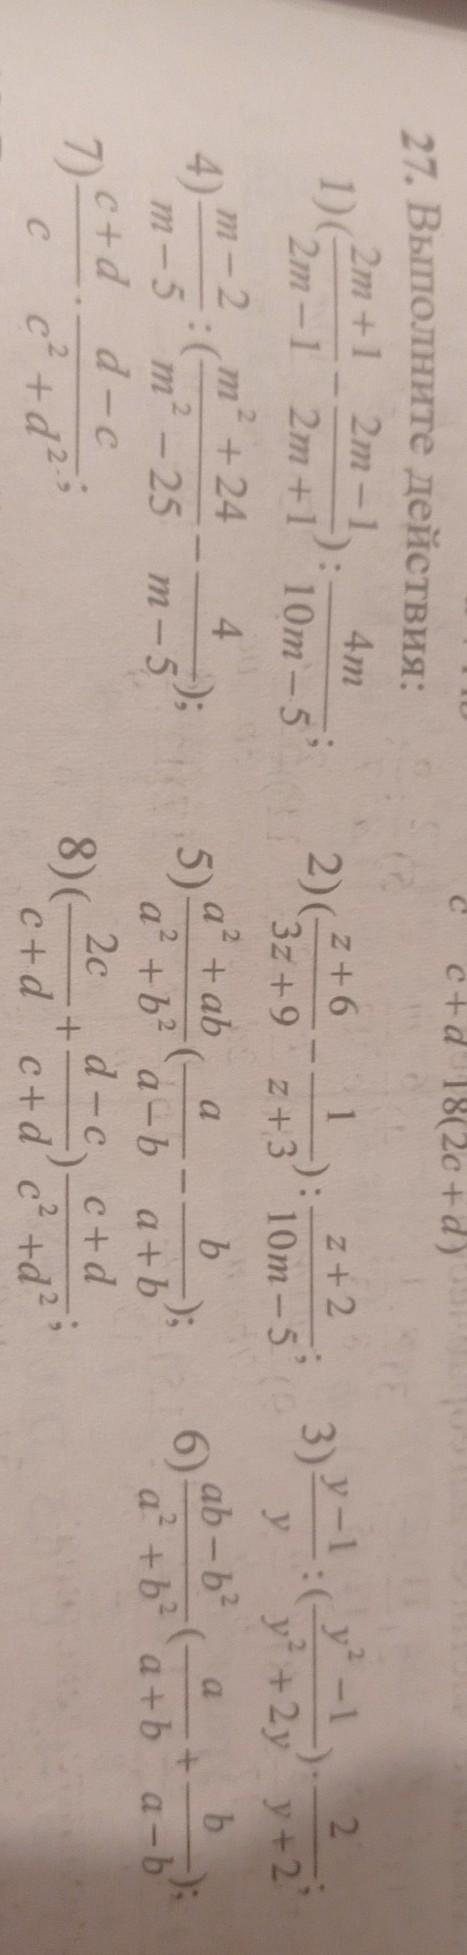 c c+d 18(2c+d)
27. Выполните действия:
1) (\frac{2m+1}{2m-1} - \frac{2m-1}{2m+1}) : \frac{4m}{10m-5}; 2) (\frac{z+6}{3z+9} - \frac{1}{z+3}) : \frac{z+2}{10m-5}; 3) \frac{y-1}{y} : (\frac{y^2-1}{y^2+2y}) \cdot \frac{2}{y+2};
4) \frac{m-2}{m-5} : (\frac{m^2+24}{m^2-25} - \frac{4}{m-5}); 5) \frac{a^2+ab}{a^2+b^2} (\frac{a}{a-b} - \frac{b}{a+b}); 6) \frac{ab-b^2}{a^2+b^2} (\frac{a}{a+b} + \frac{b}{a-b});
7) \frac{c+d}{c} \cdot \frac{d-c}{c^2+d^2}; 8) (\frac{2c}{c+d} + \frac{d-c}{c+d}) \frac{c+d}{c^2+d^2};